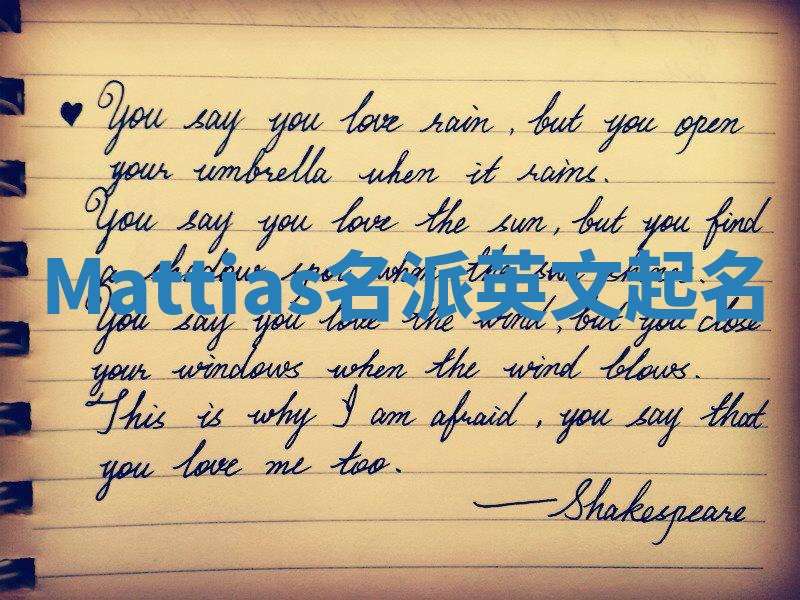 ♥ You say you love rain, but you open
your umbrella when it rains.
You say you love the sun, but you find
a shadow spot when the sun shines.
Mattias名派英文起名
You say you love the wind, but you close
your windows when the wind blows.
This is why I am afraid, you say that
you love me too.
—Shakespeare